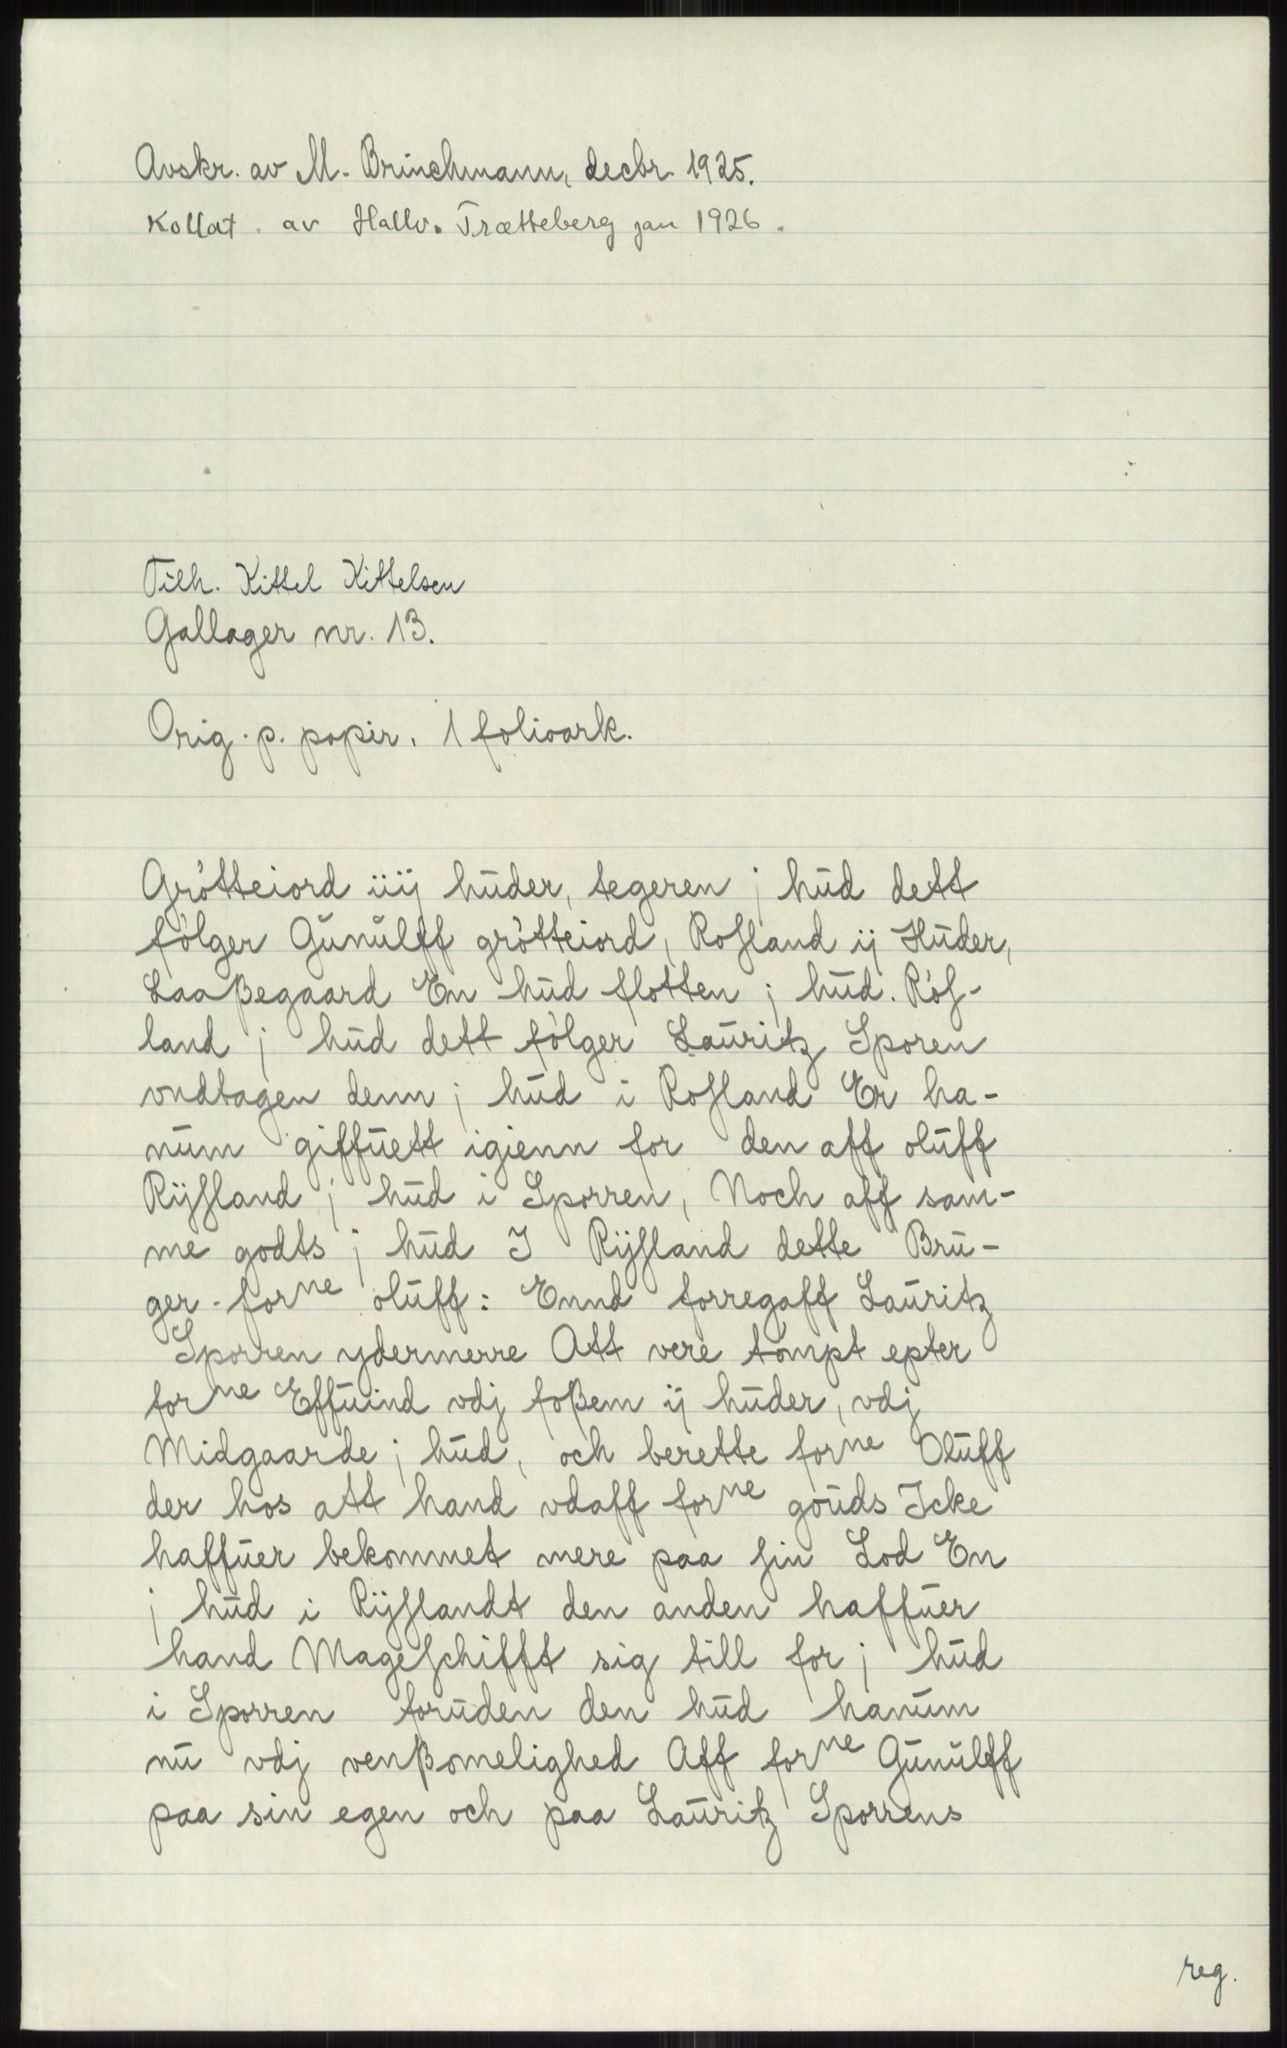 Avskr. av M. Brinchmann, decbr. 1925.
Kollat. av Hallv. Trætteberg jan 1926.
Tilh. Kittel Kittelsen
Gallager nr. 13.
Orig. p. papir. 1 folioark.
Grótteiord iiij huder, tegeren j hud dett
fólger Gunulff grótteiord, Rosland ij Huder,
Laaßegaard En hud flotten j hud. Rós-
land j hud dett fólger Lauritz Sporen
vndtagen denn j hud i Rosland Er ha-
num giffuett igienn for den aff oluff
Rijsland j hud i Sporren, Noch aff sam-
me godts j hud I Rijsland dette Bru-
ger forne oluff: Ennd forregaff Lauritz
Sporren ydermerre Att vere tómpt epter
forne Effuind vdj foßem ij huder, vdj
Midgaarde j hud, och berette forne Oluff
der hos att hand vdaff forne gouds Icke
haffuer bekommet mere paa sin Lod En
j hud i Rijslandt den anden haffuer
hand Mageschifft sig till for j hud
i Sporren foruden den hud hanum
nu vdj venßomelighed Aff forne Gunulff
paa sin egen och paa Lauritz Sporrens
reg.